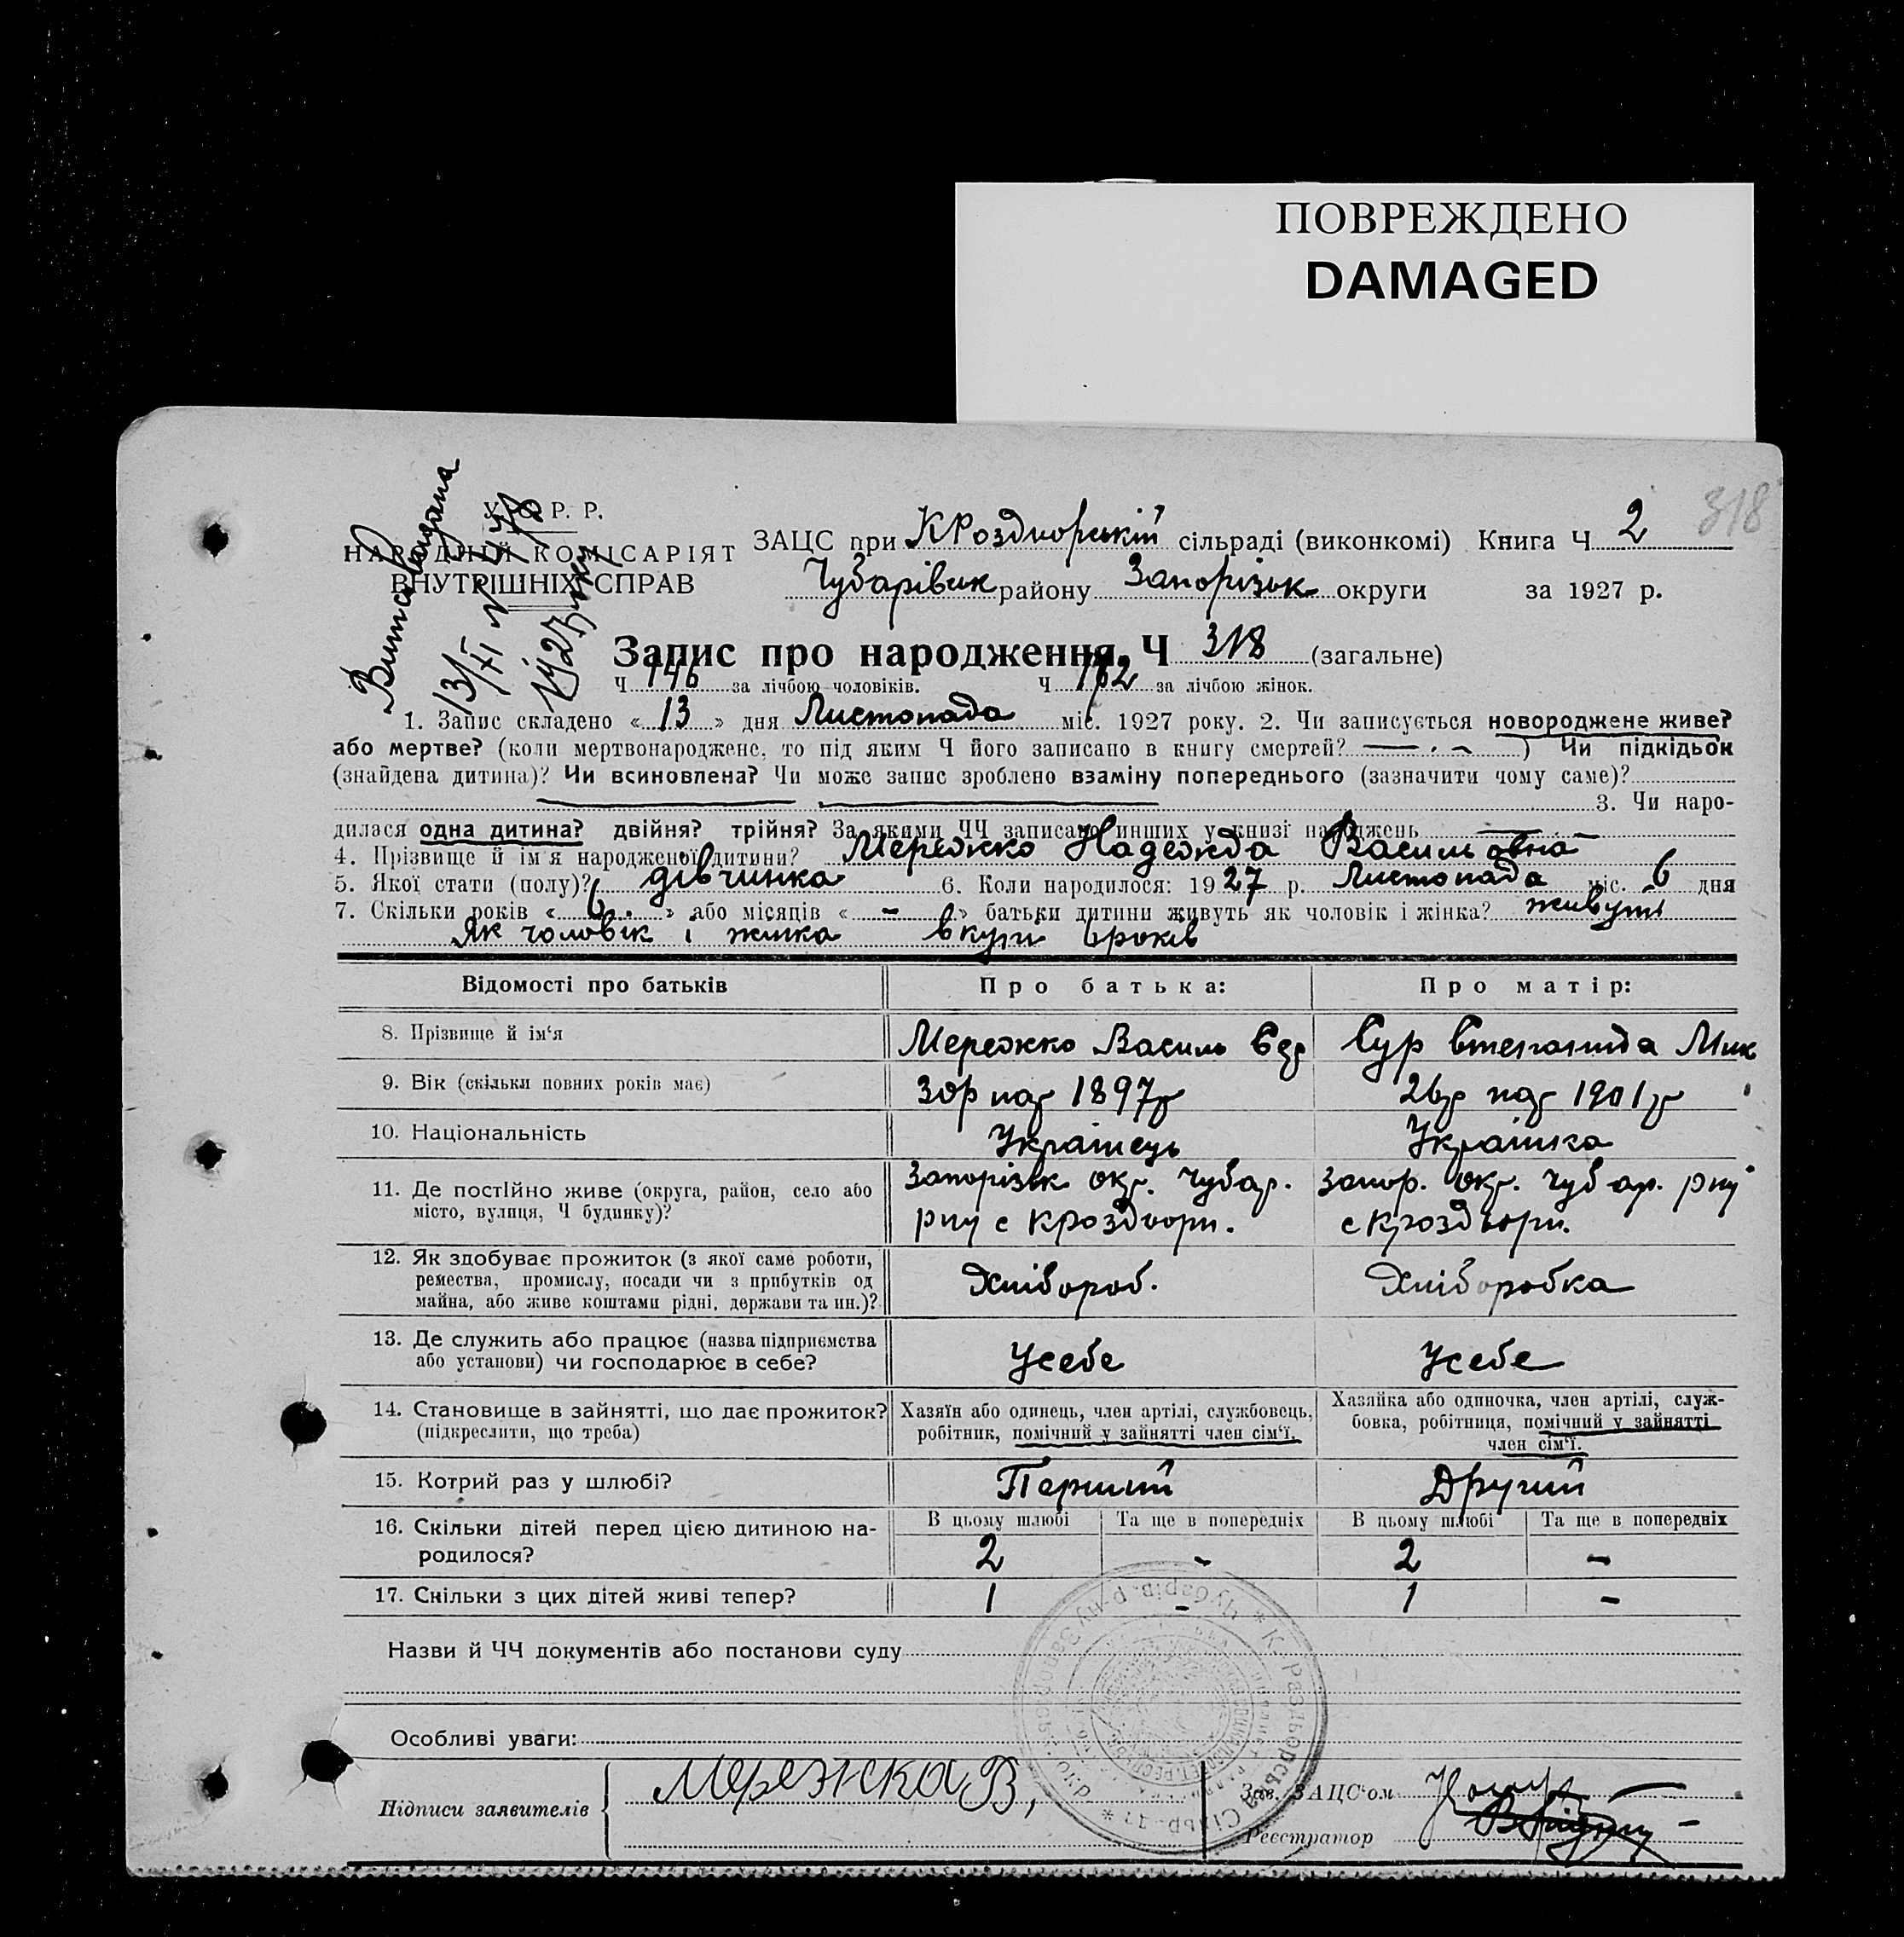 ПОВРЕЖДЕНО
DAMAGED
318
У.С.Р.Р.
НАРОДНІЙ КОМІСАРІЯТ
ВНУТРІШНІХ СПРАВ
ЗАЦС при КРоздорській сільраді (виконкомі) Книга Ч 2
Чубарівськ району Запорізьк округи за 1927 р.
Запис про народження Ч 318 (загальне)
Ч 146 за лічбою чоловіків. Ч 162 за лічбою жінок.
1. Запис складено « 13 » дня Листопада міс. 1927 року. 2. Чи записується новороджене живе?
або мертве? (коли мертвонароджене, то під яким Ч його записано в книгу смертей? — . - ) Чи підкідьок
(знайдена дитина)? Чи всиновлена? Чи може запис зроблено взаміну попереднього (зазначити чому саме)?
3. Чи наро-
дилася одна дитина? двійня? трійня? За якими ЧЧ записано инших у книзі народжень
4. Прізвище й ім'я народженої дитини? Мережко Надежда Васильовна
5. Якої стати (полу)? дівчинка 6. Коли народилося: 1927 р. Листопада міс. 6 дня
7. Скільки років « 6 . » або місяців « - » батьки дитини живуть як чоловік і жінка? живуть
Як чоловік і жінка вкупі 6 років
Відомості про батьків Про батька: Про матір:
8. Прізвище й ім'я Мережко Василь Фед Сур Степанида Мик
9. Вік (скільки повних років має) 30р нар 1897р 26р нар 1901р
10. Національність Українець Українка
11. Де постійно живе (округа, район, село або Запорізьк окр. Чубар. Запор. окр. Чубар. рну
місто, вулиця, Ч будинку)? рну с Кроздори. с Кроздори.
12. Як здобуває прожиток (з якої саме роботи,
ремества, промислу, посади чи з прибутків од Хлібороб. Хліборобка
майна, або живе коштами рідні, держави та ин.)?
13. Де служить або працює (назва підприємства
або установи) чи господарює в себе? Усебе Усебе
14. Становище в зайнятті, що дає прожиток? Хазяїн або одинець, член артілі, службовець, Хазяйка або одиночка, член артілі, служ-
(підкреслити, що треба) робітник, помічний у зайнятті член сім'ї. бовка, робітниця, помічний у зайнятті
член сім'ї.
15. Котрий раз у шлюбі? Перший Другий
16. Скільки дітей перед цією дитиною на- В цьому шлюбі Та ще в попередніх В цьому шлюбі Та ще в попередніх
родилося? 2 - 2 -
17. Скільки з цих дітей живі тепер? 1 - 1 -
Назви й ЧЧ документів або постанови суду
Особливі уваги:
Підписи заявителів Мережка В,
Зав. ЗАЦС'ом
Реєстратор